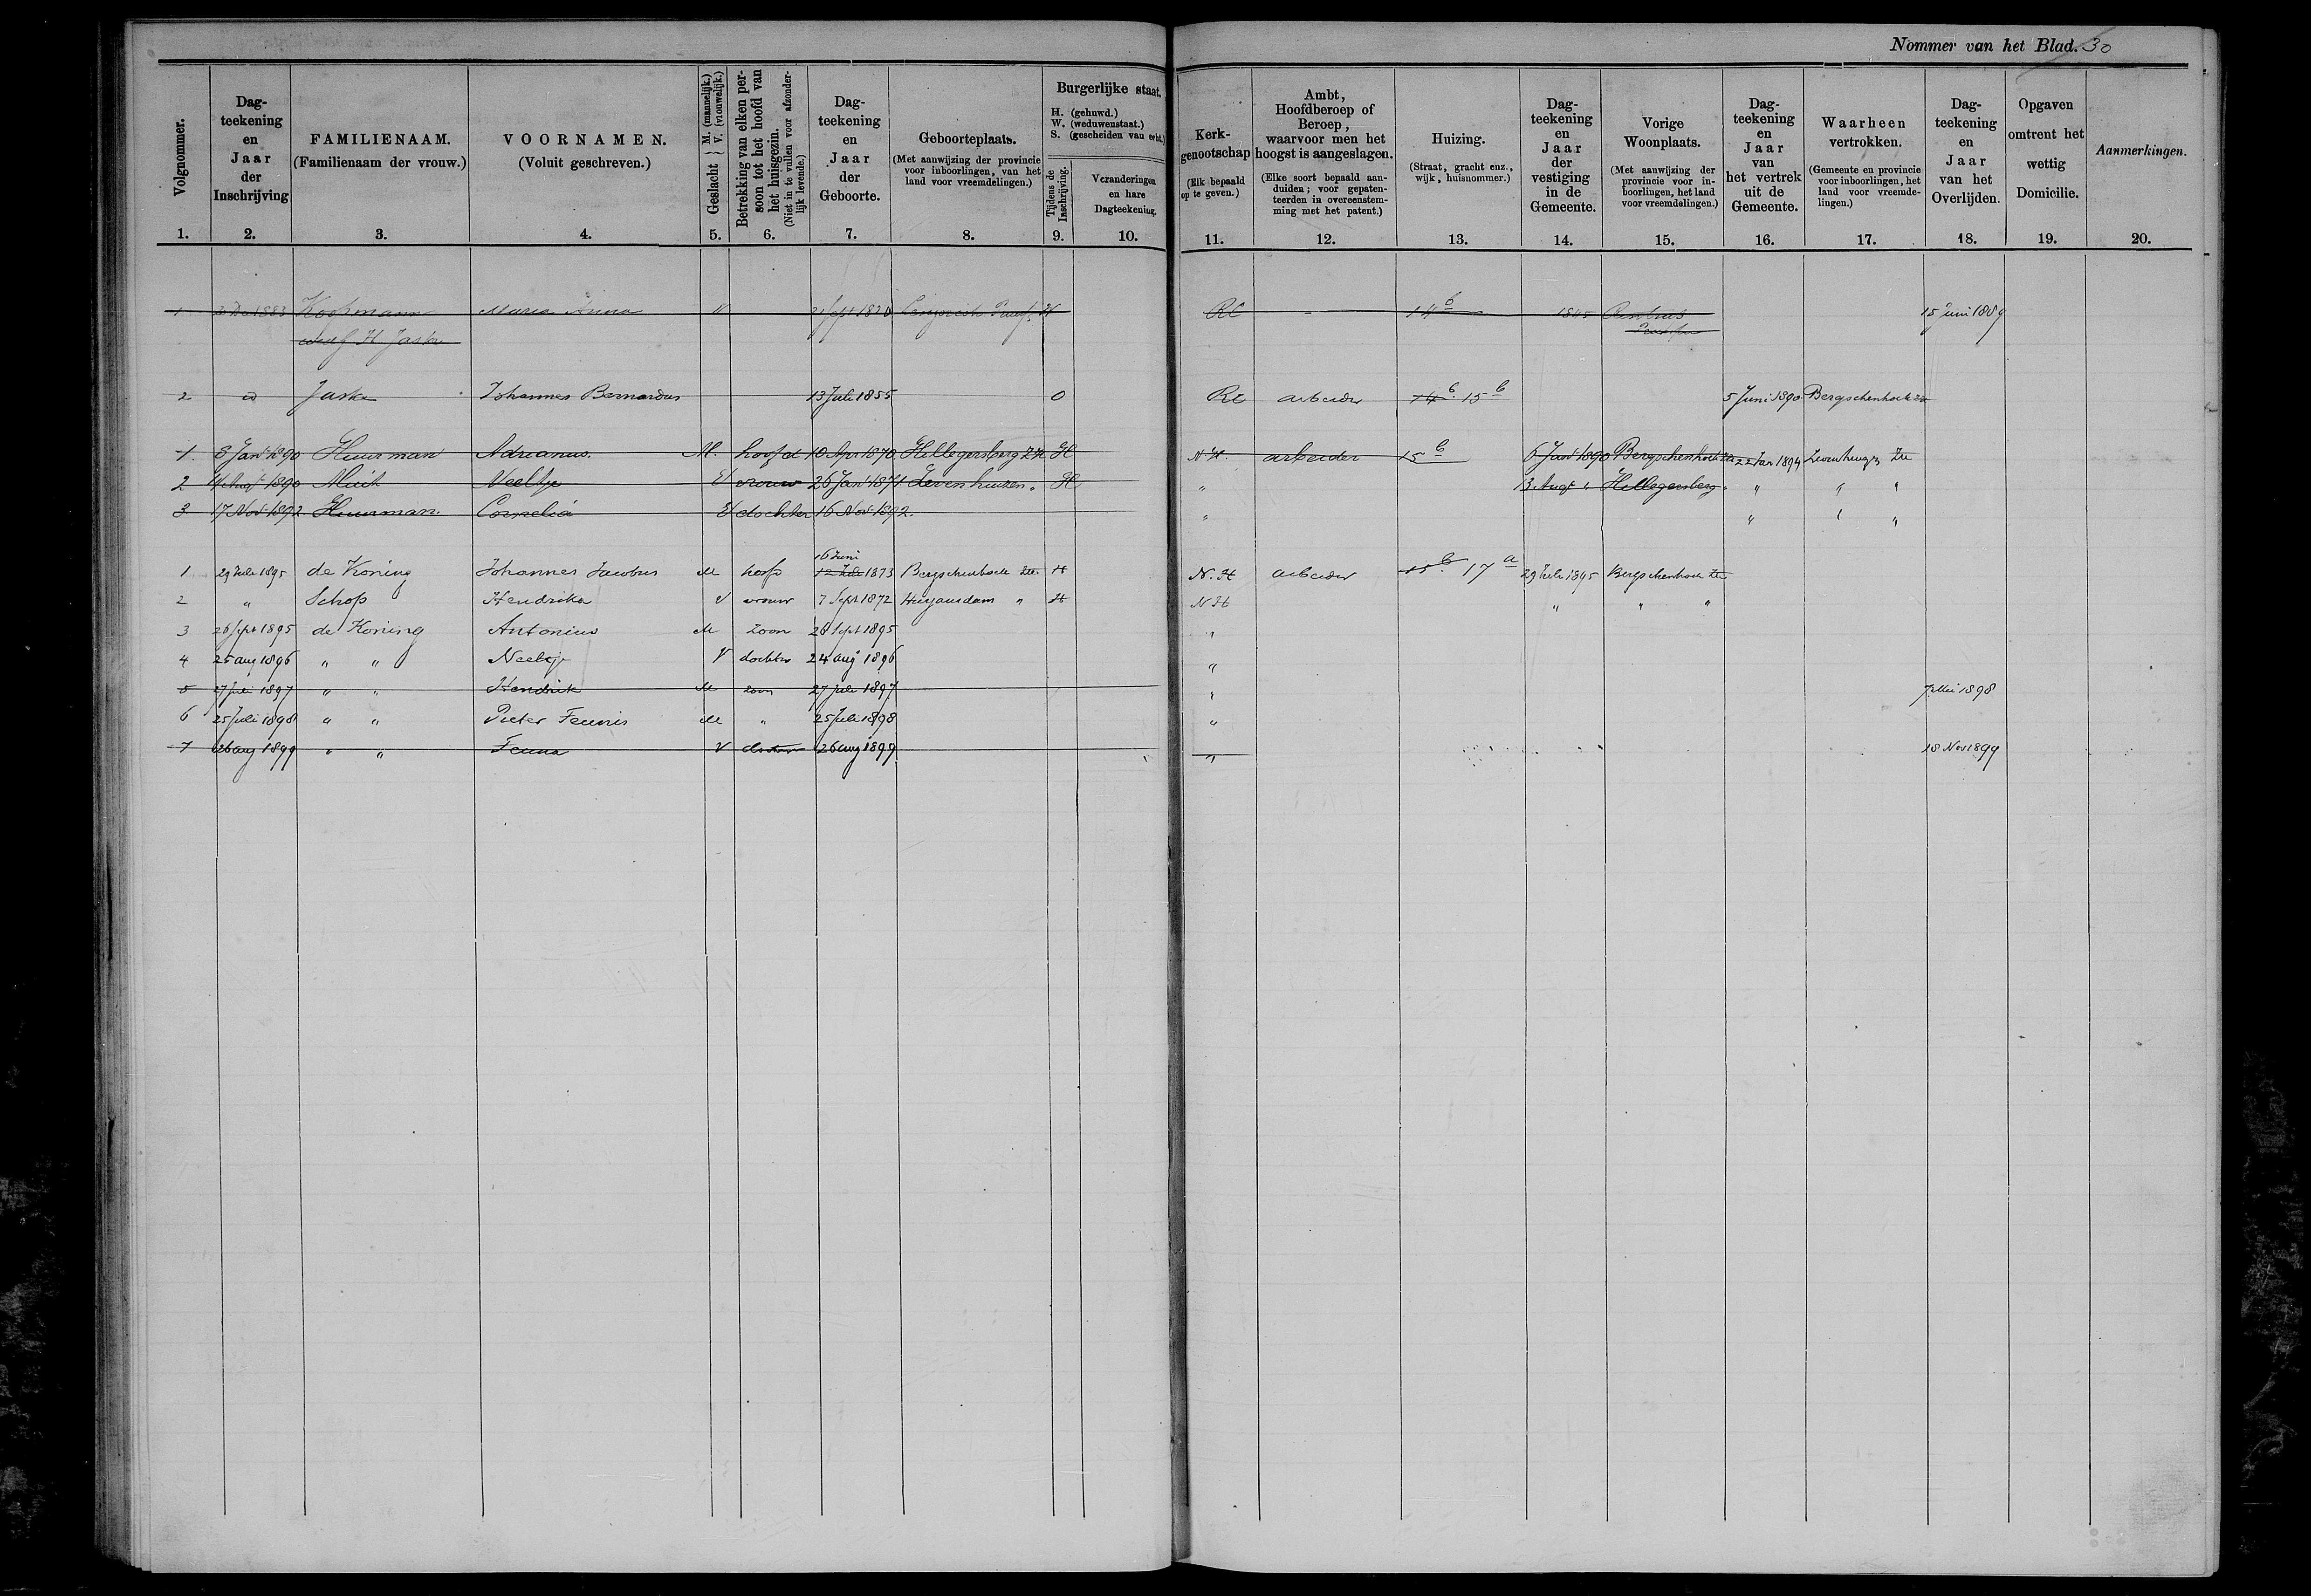 Nommer van het Blad. 30
Volgnommer.
Dag-
teekening
en
Jaar
der
Inschrijving
FAMILIENAAM.
(Familienaam der vrouw.)
VOORNAMEN.
(Voluit geschreven.)
Geslacht { M. (mannelijk.) V. (vrouwelijk.)
Betrekking van elken per-
soon tot het hoofd van
het huisgezin.
(Niet in te vullen voor afzonder-
lijk levende.)
Dag-
teekening
en
Jaar
der
Geboorte.
Geboorteplaats.
(Met aanwijzing der provincie
voor inboorlingen, van het
land voor vreemdelingen.)
Burgerlijke staat.
H. (gehuwd.)
W. (weduwenstaat.)
S. (gescheiden van echt.)
Tijdens de
Inschrijving.
Veranderingen
en hare
Dagteekening.
Kerk-
genootschap
(Elk bepaald
op te geven.)
Ambt,
Hoofdberoep of
Beroep,
waarvoor men het
hoogst is aangeslagen.
(Elke soort bepaald aan-
duiden; voor gepaten-
teerden in overeenstem-
ming met het patent.)
Huizing.
(Straat, gracht enz.,
wijk, huisnommer.)
Dag-
teekening
en
Jaar
der
vestiging
in de
Gemeente.
Vorige
Woonplaats.
(Met aanwijzing der
provincie voor in-
boorlingen, het land
voor vreemdelingen.)
Dag-
teekening
en
Jaar
van
het vertrek
uit de
Gemeente.
Waarheen
vertrokken.
(Gemeente en provincie
voor inboorlingen, het
land voor vreemde-
lingen.)
Dag-
teekening
en
Jaar
van het
Overlijden.
Opgaven
omtrent het
wettig
Domicilie.
Aanmerkingen.
1. 2. 3. 4. 5. 6. 7. 8. 9. 10. 11. 12. 13. 14. 15. 16. 17. 18. 19. 20.
1 1883 Koopmann Maria Anna V Sept 1820 H RC 14b 1845 15 Juni 1889
H Jaske
2 id Jaske Johannes Bernardus 13 Juli 1855 O RC arbeider 14b 15b 5 Juni 1890 Bergschenhoek
1. 8 Jan 1890 Huurman Adrianus. M. hoofd 10 Apr 1870 Hillegersberg ZH H N.H. arbeider 15b 6 Jan 1890 Bergschenhoek 22 Jan 1894 Zevenhuizen
2 1890 Muit Neeltje V vrouw 26 Jan 1871 Zevenhuizen " H " 13 Aug " Hillegersberg " " " "
3 17 Nov 1892 Huurman. Cornelia V dochter 16 Nov 1892. " " " "
16 Juni
1 29 Juli 1895 de Koning Johannes Jacobus M hoofd 12 Juli 1873 Bergschenhoek H N.H arbeider 15b 17a 29 Juli 1895 Bergschenhoek
2 " Schop Hendrika V vrouw 7 Sept 1872 " H N H " " "
3 26 Sept 1895 de Koning Antonius M zoon 26 Sept 1895 "
4 25 aug 1896 " " Neeltje V dochter 24 aug 1896 "
5 27 Juli 1897 " " Hendrik M zoon 27 Juli 1897 " 7 Mei 1898
6 25 Juli 1898 " " Pieter Teunis M " 25 Juli 1898 "
7 26 aug 1899 " " Fenna V dochter 26 aug 1899 " 18 Nov 1899